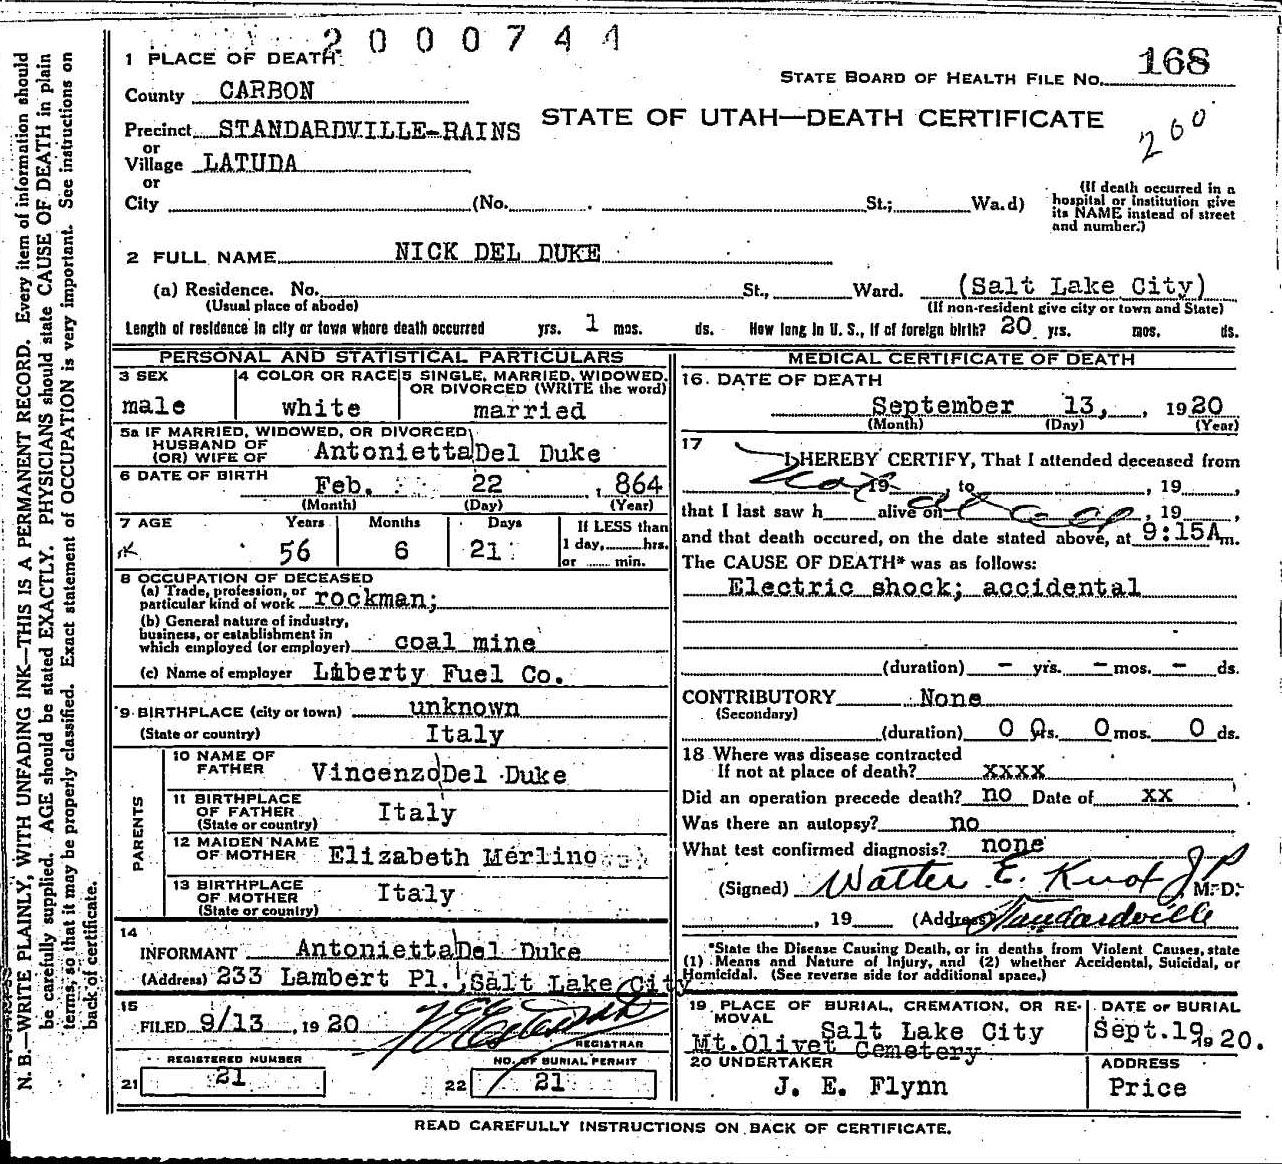 2000744
1 PLACE OF DEATH
STATE BOARD OF HEALTH FILE NO. 168
County CARBON
STATE OF UTAH—DEATH CERTIFICATE
260
Precinct STANDARDVILLE-RAINS
or
Village LATUDA
or
City (No. St.; Wa.d)
(If death occurred in a hospital or institution give its NAME instead of street and number.)
2 FULL NAME NICK DEL DUKE
(a) Residence. No. St., Ward. (Salt Lake City)
(Usual place of abode) (If non-resident give city or town and State)
Length of residence in city or town where death occurred yrs. 1 mos. ds. How long in U. S., if of foreign birth? 20 yrs. mos. ds.
PERSONAL AND STATISTICAL PARTICULARS
3 SEX
male
4 COLOR OR RACE
white
5 SINGLE, MARRIED, WIDOWED, OR DIVORCED (WRITE the word)
married
5a IF MARRIED, WIDOWED, OR DIVORCED
HUSBAND OF
(OR) WIFE OF Antonietta Del Duke
6 DATE OF BIRTH
Feb. 22 , 864
(Month) (Day) (Year)
7 AGE Years Months Days If LESS than
56 6 21 1 day, hrs.
or min.
8 OCCUPATION OF DECEASED
(a) Trade, profession, or
particular kind of work rockman;
(b) General nature of industry,
business, or establishment in
which employed (or employer) coal mine
(c) Name of employer Liberty Fuel Co.
9 BIRTHPLACE (city or town) unknown
(State or country) Italy
PARENTS
10 NAME OF
FATHER Vincenzo Del Duke
11 BIRTHPLACE
OF FATHER Italy
(State or country)
12 MAIDEN NAME
OF MOTHER Elizabeth Merlino
13 BIRTHPLACE
OF MOTHER Italy
(State or country)
14
INFORMANT Antonietta Del Duke
(Address) 233 Lambert Pl., Salt Lake City
15
FILED 9/13, 1920
REGISTRAR
REGISTERED NUMBER
21 21
NO. OF BURIAL PERMIT
22 21
MEDICAL CERTIFICATE OF DEATH
16. DATE OF DEATH
September 13, , 1920
(Month) (Day) (Year)
17
I HEREBY CERTIFY, That I attended deceased from
, 19 , to , 19 ,
that I last saw h alive on , 19 ,
and that death occured, on the date stated above, at 9:15A m.
The CAUSE OF DEATH* was as follows:
Electric shock; accidental
(duration) – yrs. – mos. – ds.
CONTRIBUTORY None
(Secondary)
(duration) 0 0 yrs. 0 mos. 0 ds.
18 Where was disease contracted
If not at place of death? XXXX
Did an operation precede death? no Date of XX
Was there an autopsy? no
What test confirmed diagnosis? none
(Signed) Walter E. Knox J P M. D.
, 19 (Address) Standardville
*State the Disease Causing Death, or in deaths from Violent Causes, state
(1) Means and Nature of Injury, and (2) whether Accidental, Suicidal, or
Homicidal. (See reverse side for additional space.)
19 PLACE OF BURIAL, CREMATION, OR RE-
MOVAL Salt Lake City
Mt. Olivet Cemetery
DATE OF BURIAL
Sept. 19 1920.
20 UNDERTAKER
J. E. Flynn
ADDRESS
Price
READ CAREFULLY INSTRUCTIONS ON BACK OF CERTIFICATE.
N. B.—WRITE PLAINLY, WITH UNFADING INK—THIS IS A PERMANENT RECORD. Every item of information should
be carefully supplied. AGE should be stated EXACTLY. PHYSICIANS should state CAUSE OF DEATH in plain
terms, so that it may be properly classified. Exact statement of OCCUPATION is very important. See instructions on
back of certificate.